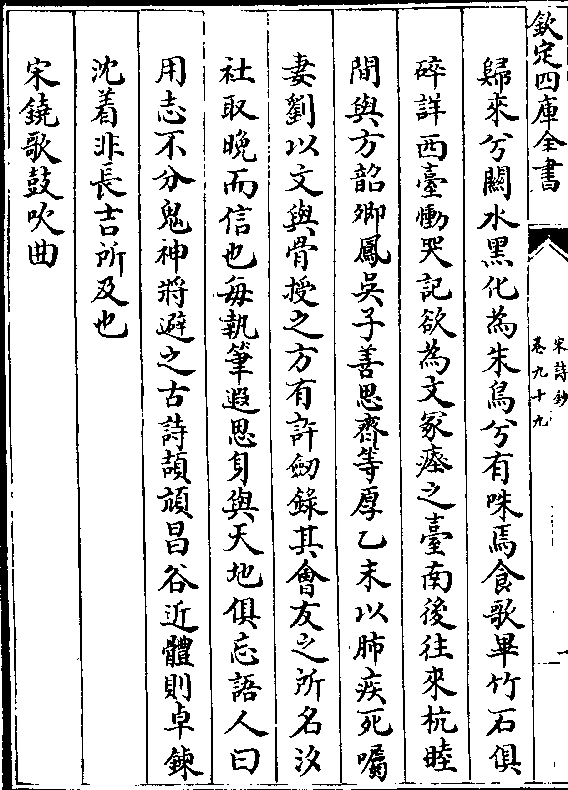 欽定四庫全書
宋詩鈔
卷九十九
歸來兮關水黑化為朱鳥兮有咮焉食歌畢竹石俱
碎詳西臺慟哭記欲為文冢瘞之臺南後往來杭睦
間與方韶卿鳳吳子善思齊等厚乙未以肺疾死囑
妻劉以文與骨授之方有許劒錄其會友之所名汐
社取晚而信也每執筆遐思身與天地俱忘語人曰
用志不分鬼神將避之古詩頡頏昌谷近體則卓鍊
沈着非長吉所及也
宋鐃歌鼓吹曲